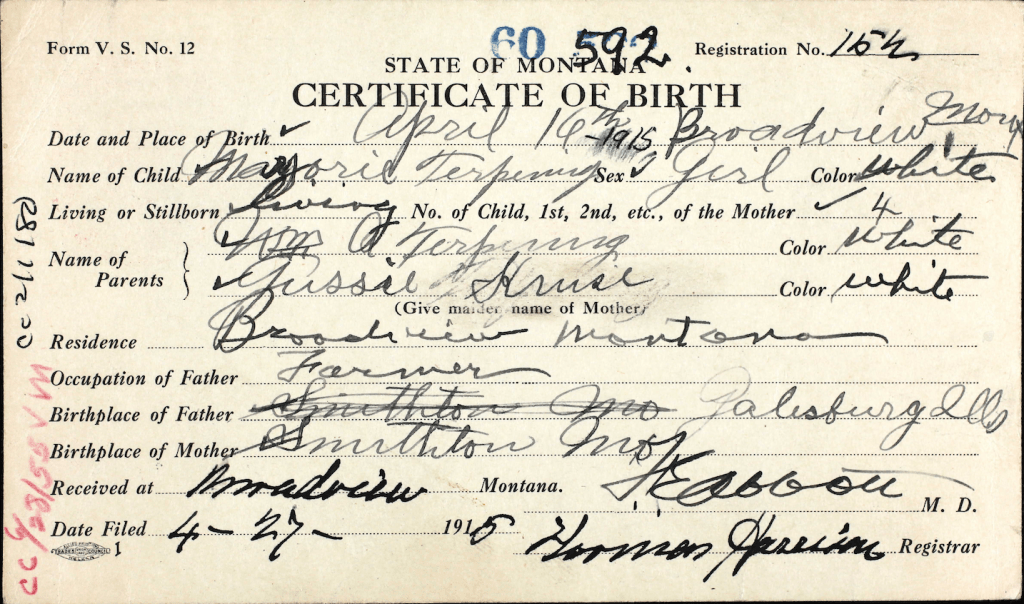 Form V. S. No. 12
60 592
Registration No. 152
STATE OF MONTANA
CERTIFICATE OF BIRTH
Date and Place of Birth April 16th 1915, Broadview Mont
Name of Child Marjorie Terpening Sex Girl Color White
Living or Stillborn Living No. of Child, 1st, 2nd, etc., of the Mother 4
Name of Parents
Wm A Terpening Color White
Gussie Kruse Color White
(Give maiden name of Mother)
Residence Broadview Montana
Occupation of Father Farmer
Birthplace of Father Smithton Mo Galesburg Ills
Birthplace of Mother Smithton Mo
Received at Broadview Montana. M. D.
Date Filed 4-27- 1915 Harrison Registrar
1